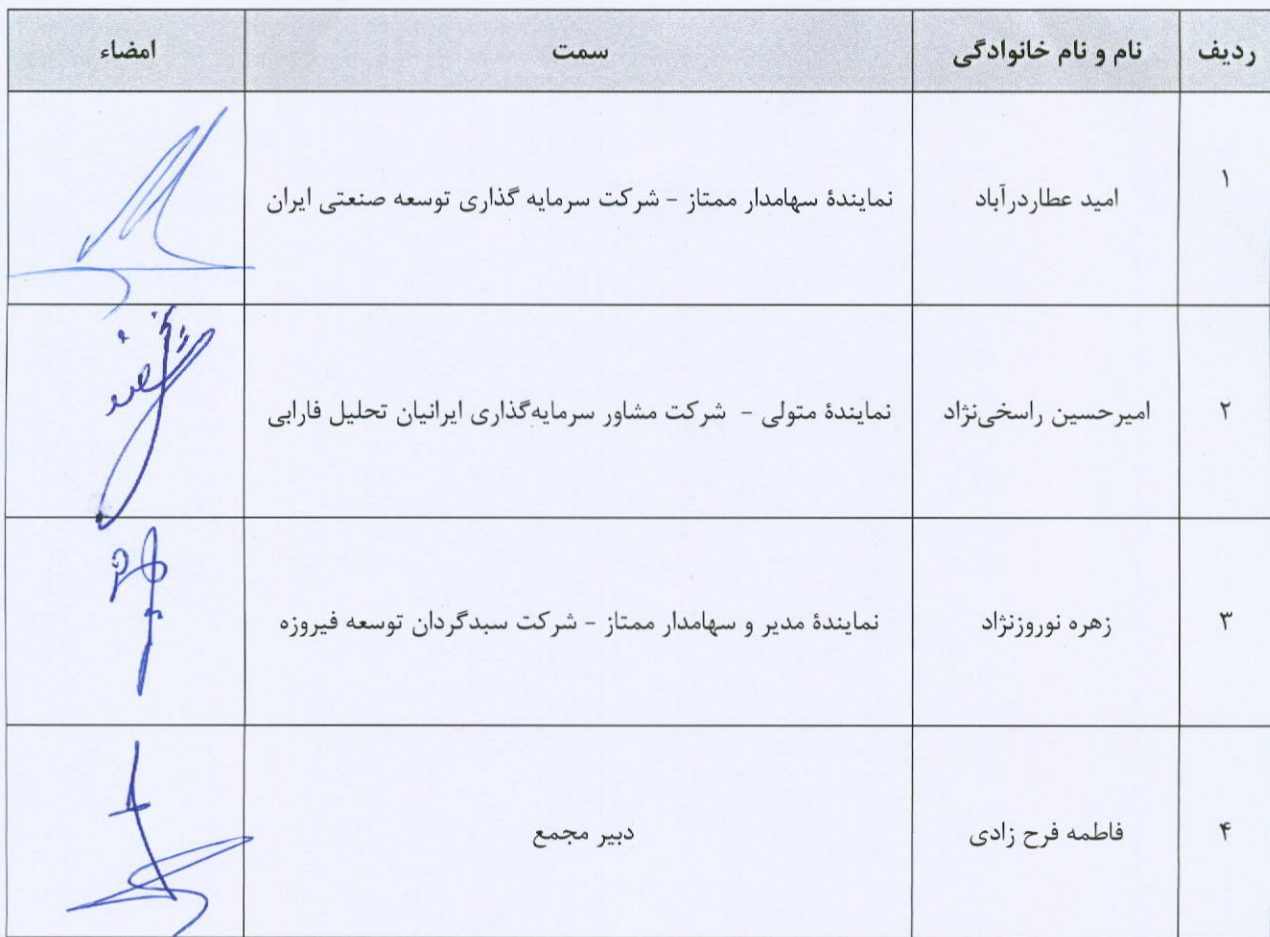 ردیف نام و نام خانوادگی سمت امضاء
۱ امید عطاردرآباد نمایندهٔ سهامدار ممتاز – شرکت سرمایه گذاری توسعه صنعتی ایران
۲ امیرحسین راسخی‌نژاد نمایندهٔ متولی – شرکت مشاور سرمایه‌گذاری ایرانیان تحلیل فارابی
۳ زهره نوروزنژاد نمایندهٔ مدیر و سهامدار ممتاز – شرکت سبدگردان توسعه فیروزه
۴ فاطمه فرح زادی دبیر مجمع